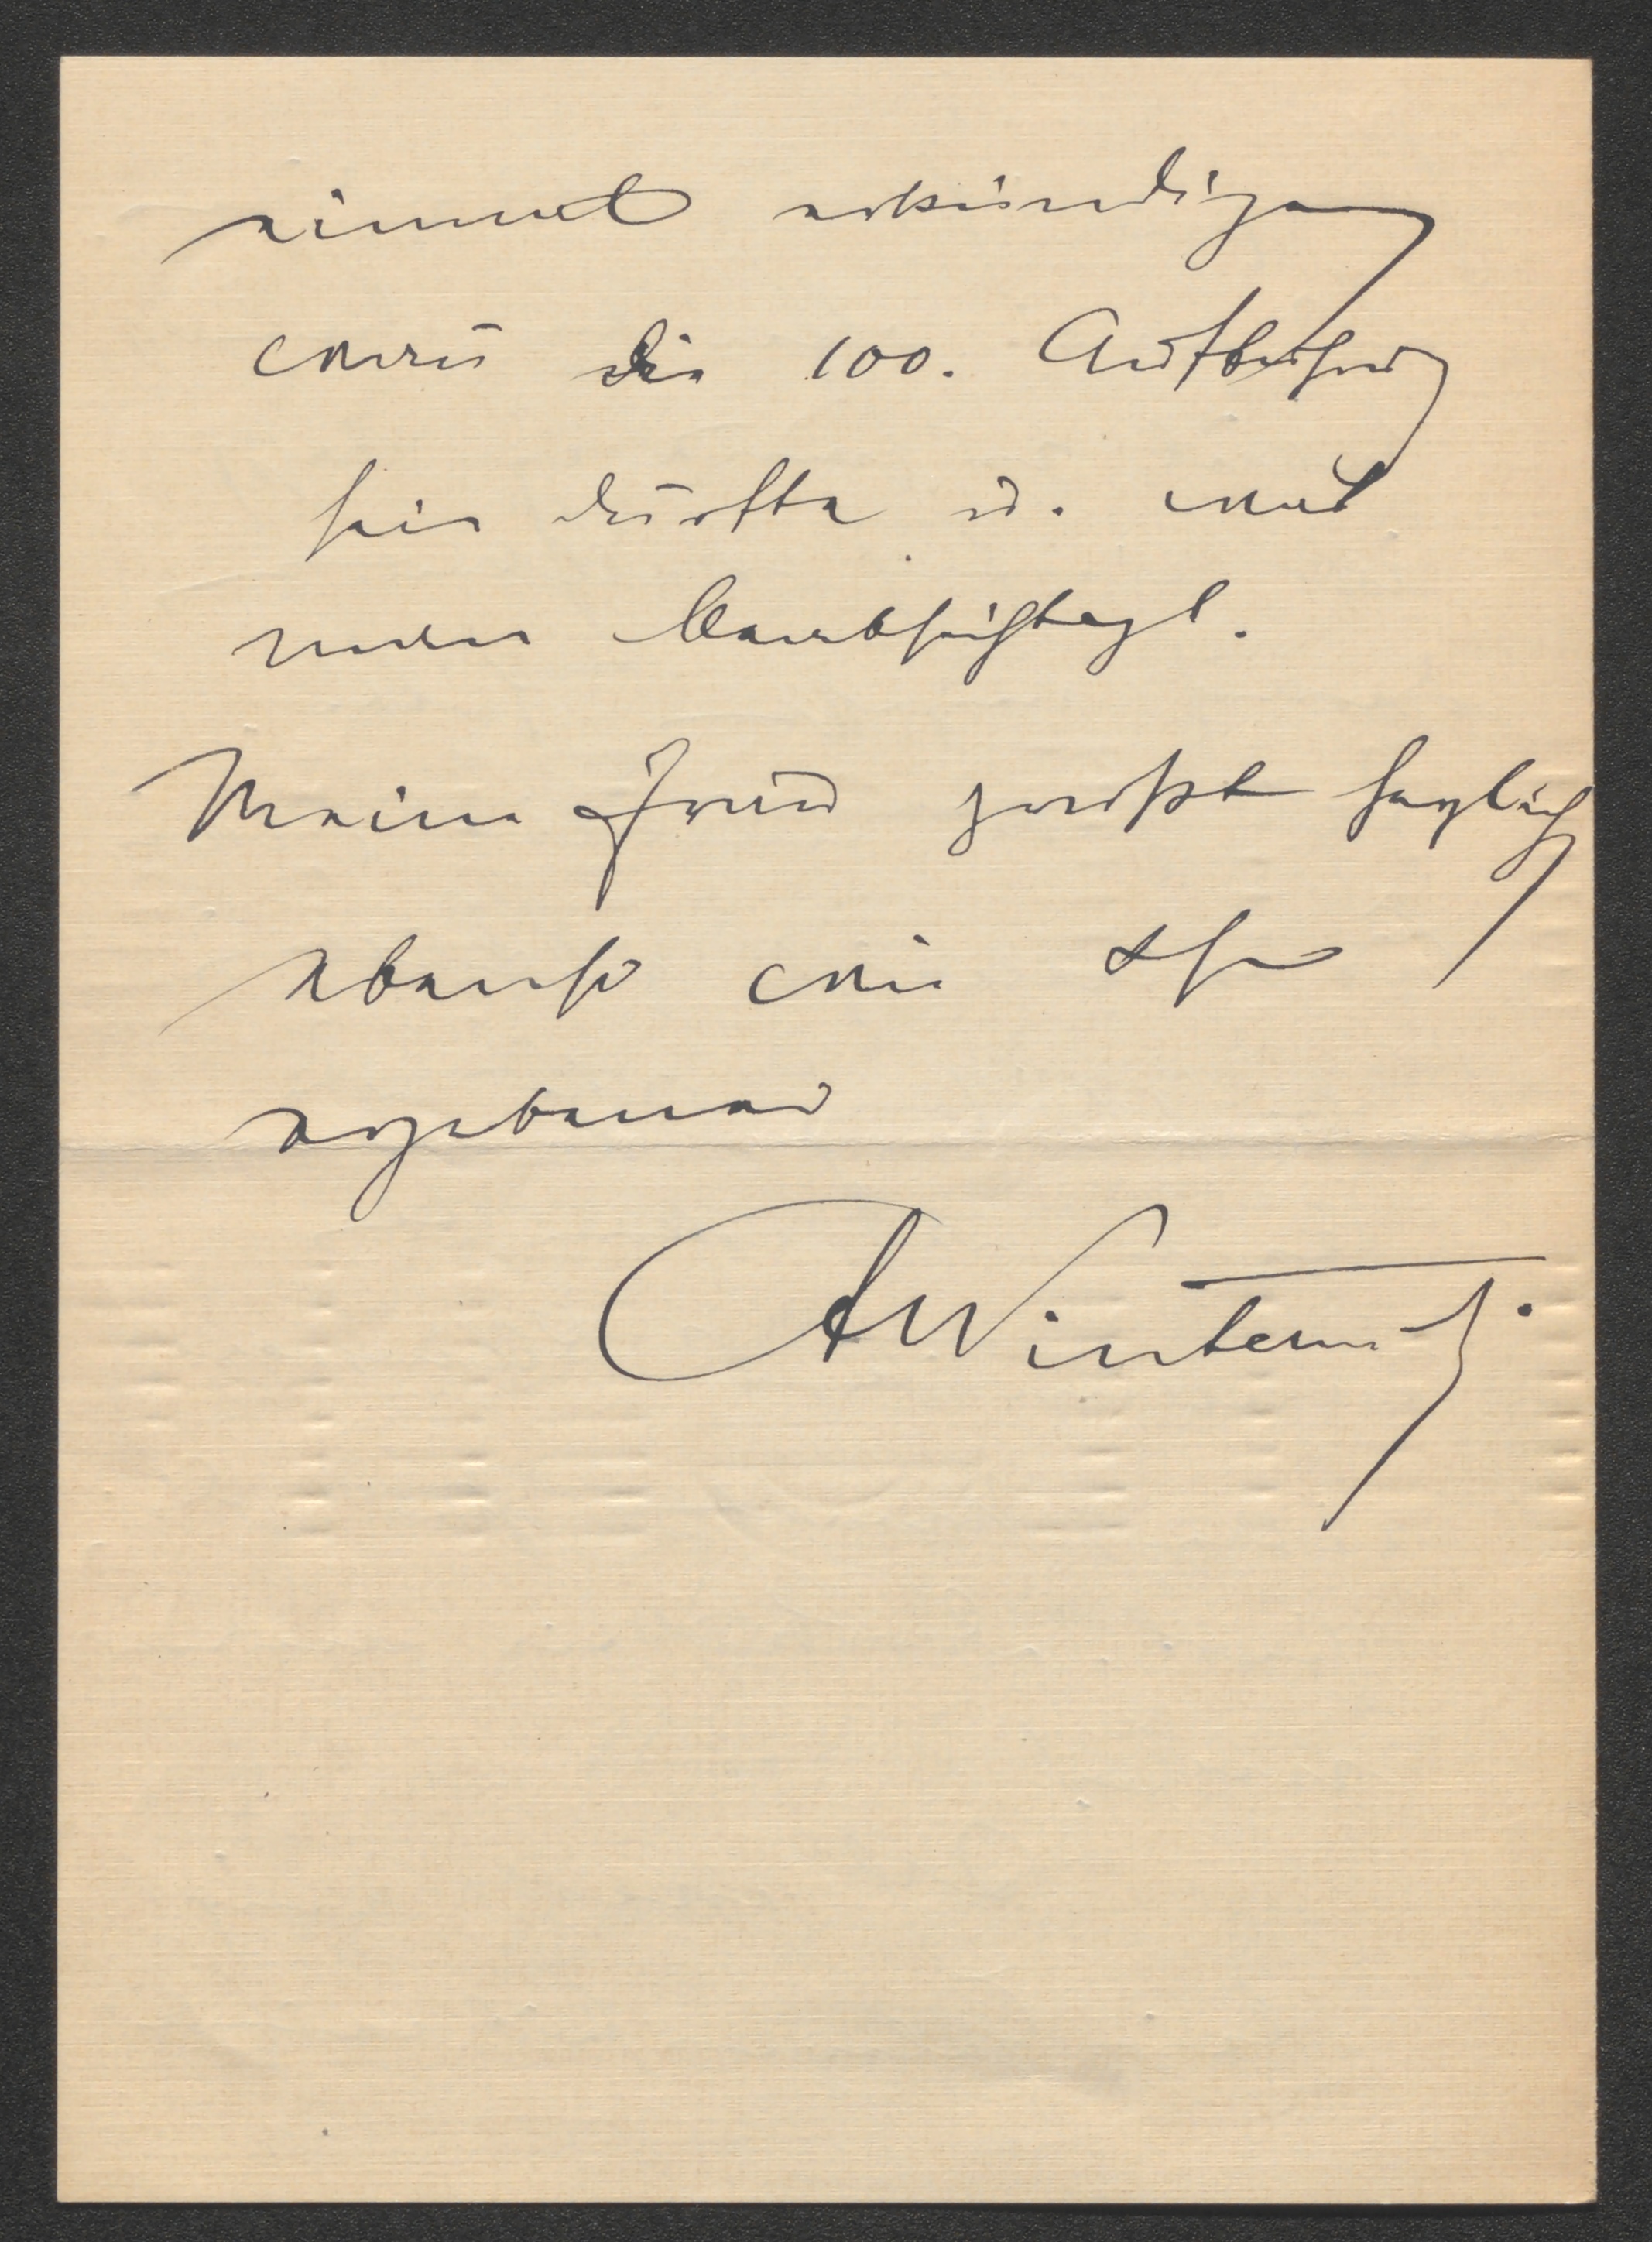 einmal erkundigen
wann die 100. Aufführung
sein dürfte u. was
man beabsichtigt.
Meine Frau grüßt herzlich
ebenso wie Ihr
ergebener
AWinternitz.